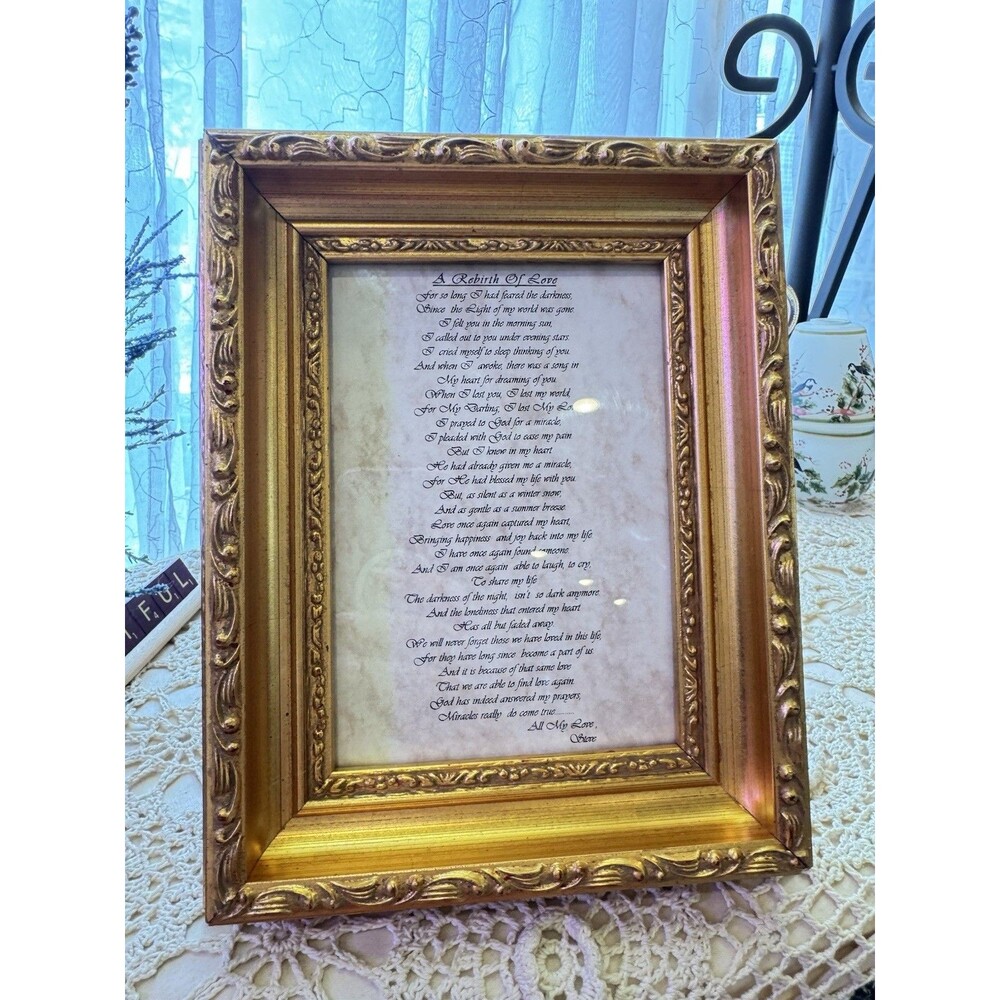 A Rebirth Of Love
For so long I had feared the darkness,
Since the Light of my world was gone.
I felt you in the morning sun,
I called out to you under evening stars.
I cried myself to sleep thinking of you.
And when I awoke, there was a song in
My heart for dreaming of you.
When I lost you, I lost my world,
For My Darling, I lost My
I prayed to God for a miracle,
I pleaded with God to ease my pain
But I knew in my heart
He had already given me a miracle,
For He had blessed my life with you.
But, as silent as a winter snow,
And as gentle as a summer breeze
Love once again captured my heart,
Bringing happiness and joy back into my life
I have once again found someone.
And I am once again able to laugh, to cry,
To share my life
The darkness of the night, isn't so dark anymore,
And the loneliness that entered my heart
Has all but faded away.
We will never forget those we have loved in this life,
For they have long since become a part of us.
And it is because of that same love
That we are able to find love again.
God has indeed answered my prayers,
Miracles really do come true......
All My Love,
Steve
FUL